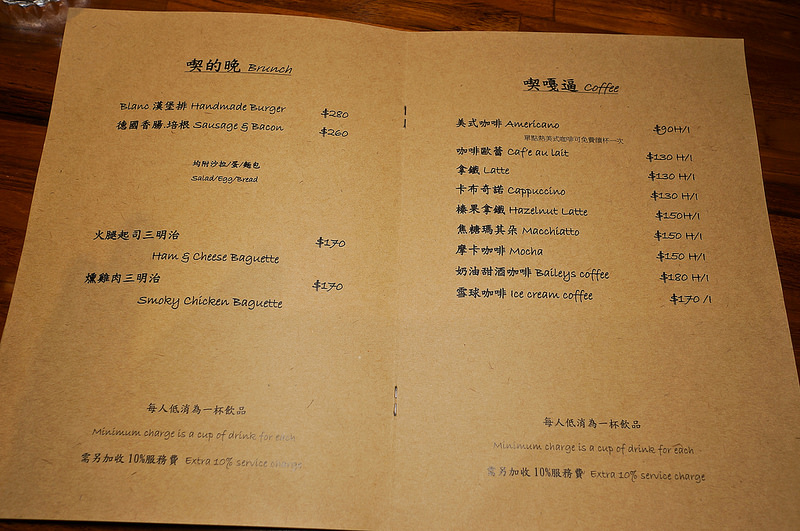 喫的晚 Brunch
Blanc 漢堡排 Handmade Burger $280
德國香腸.培根 Sausage & Bacon $260
均附沙拉/蛋/麵包
Salad/Egg/Bread
火腿起司三明治 $170
Ham & Cheese Baguette
燻雞肉三明治 $170
Smoky Chicken Baguette
每人低消為一杯飲品
Minimum charge is a cup of drink for each
需另加收 10%服務費 Extra 10% service charge
喫嘎逼 Coffee
美式咖啡 Americano $90H/I
單點熱美式咖啡可免費續杯一次
咖啡歐蕾 Caf'e au lait $130 H/I
拿鐵 Latte $130 H/I
卡布奇諾 Cappuccino $130 H/I
榛果拿鐵 Hazelnut Latte $150H/I
焦糖瑪其朵 Macchiatto $150 H/I
摩卡咖啡 Mocha $150 H/I
奶油甜酒咖啡 Baileys coffee $180 H/I
雪球咖啡 Ice cream coffee $170 /I
每人低消為一杯飲品
Minimum charge is a cup of drink for each
需另加收 10%服務費 Extra 10% service charge